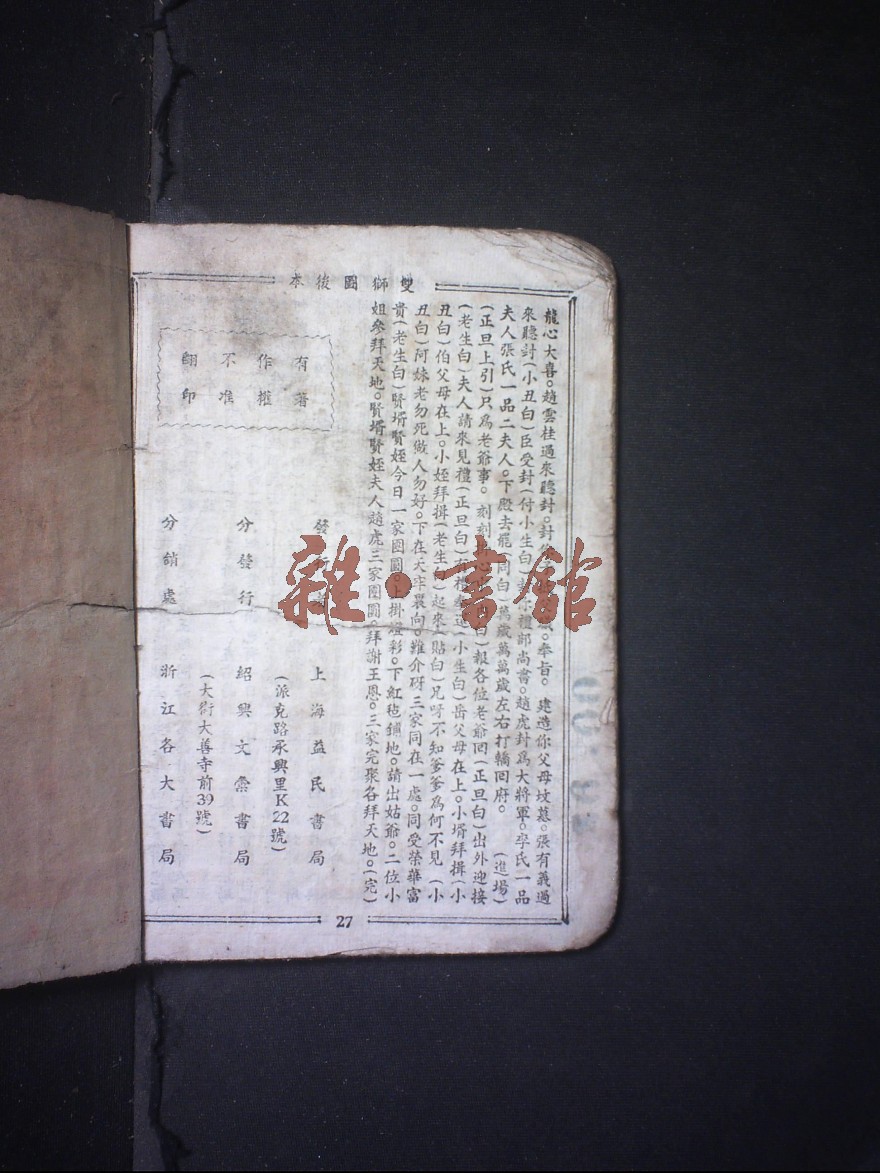 雙獅圖後本
龍心大喜。趙雲桂過來聽封。封奉旨。建造你父母坟墓。張有義過
來聽封(小丑白)臣受封(付小生白)封你禮部尚書。趙虎封爲大將軍。李氏一品
夫人張氏一品二夫人。下殿去罷(同白)萬歲萬萬歲左右打轎回府。(進場)
(正旦上引)只爲老爺事。刻刻掛心白)報各位老爺回(正旦白)出外迎接
(老生白)夫人請來見禮(正旦白)有禮(小生白)岳父母在上。小壻拜揖(小
丑白)伯父母在上。小姪拜揖(老生白)起來(貼白)兄呀不知爹爹爲何不見(小
丑白)阿妹老勿死做人勿好。下在天牢裏向。難介砑三家同在一處。同受榮華富
貴(老生白)賢壻賢姪今日一家团圓。上掛燈彩。下紅毡鋪地。請出姑爺。二位小
姐參拜天地。賢壻賢姪夫人趙虎三家團圓。拜謝王恩。三家完聚各拜天地。(完)
有著
作權
不准
翻印
發行
上海益民書局
(派克路承興里K22號)
分發行
紹興文霱書局
(大街大善寺前39號)
分銷處
浙江各大書局
27
雜·書館